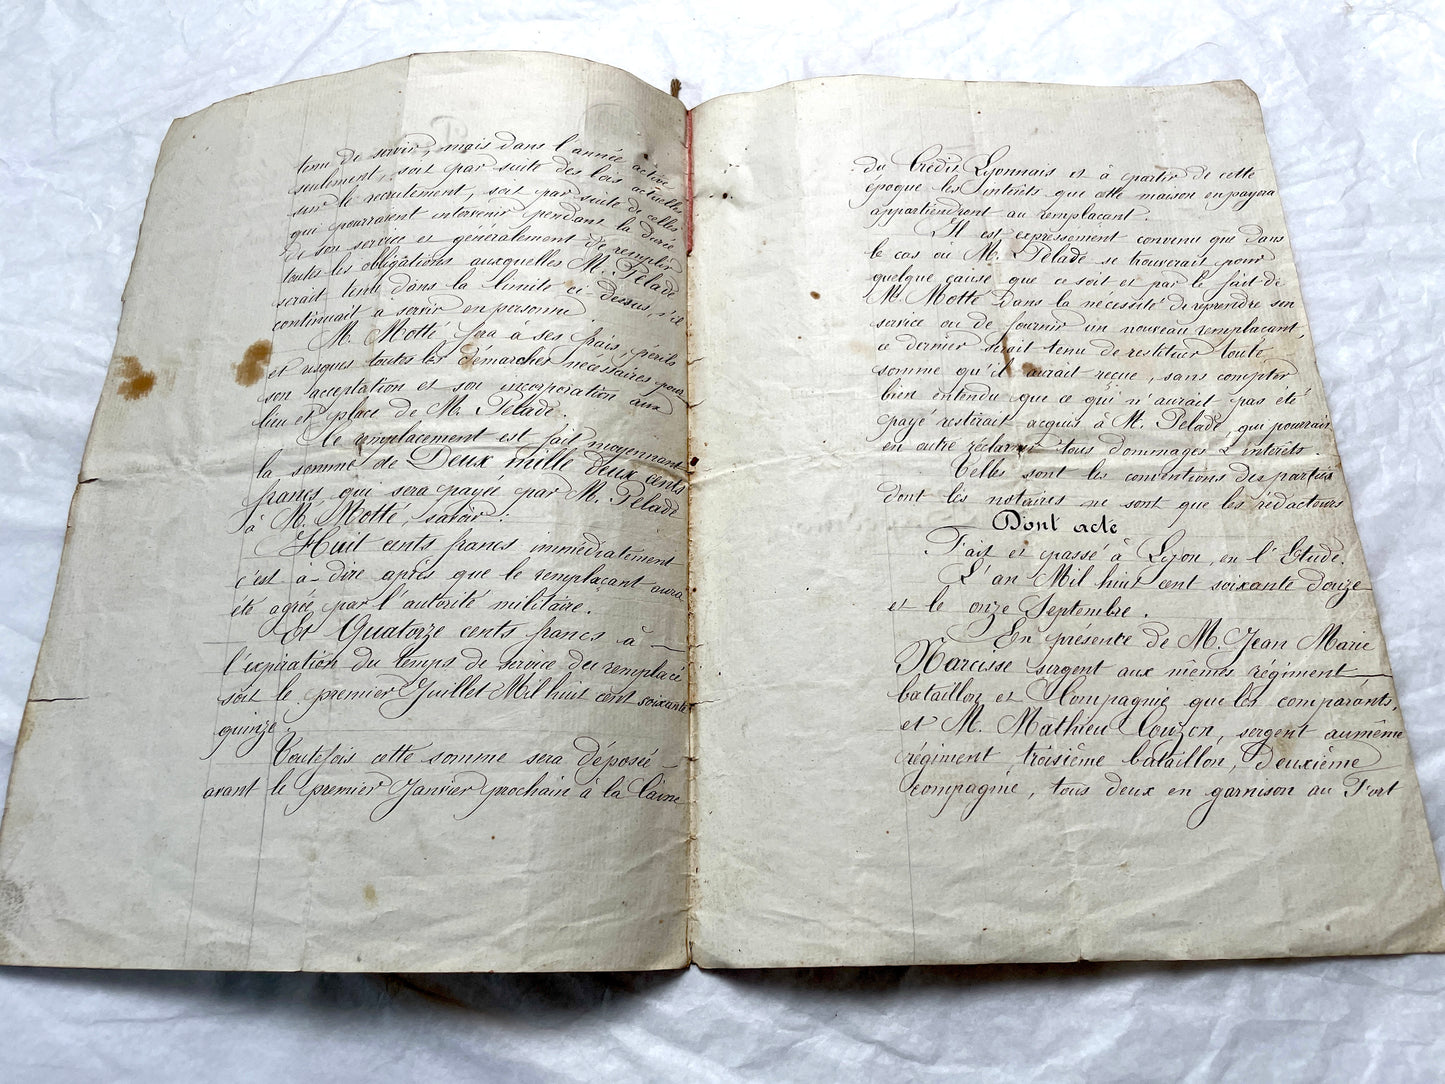 tenu de servir, mais dans l'année active
seulement, soit par suite des lois actuelles
sur le recrutement, soit par suite de celles
qui pourraient intervenir pendant la durée
de son service et généralement de remplir
toutes les obligations auxquelles M. Pélade
serait tenu dans la limite ci dessus, s'il
continuait à servir en personne
M. Motté fera à ses frais, périls
et risques toutes les démarches nécessaires pour
son acceptation et son incorporation aux
lieu et place de M. Pelade.
Ce remplacement est fait moyennant
la somme de Deux mille deux cents
francs, qui sera payée par M. Pélade
à M. Motté, savoir :
Huit cents francs immédiatement
c'est à-dire après que le remplaçant aura
été agréé par l'autorité militaire.
Et Quatorze cents francs à
l'expiration du temps de service du remplacé
soit le premier Juillet Mil huit cent soixante
quinze.
Toutefois cette somme sera déposée
avant le premier Janvier prochain à la Caisse
du Crédit Lyonnais et à partir de cette
époque les intérêts que cette maison en payera
appartiendront au remplaçant.
Il est expressément convenu que dans
le cas où M. Pelade se trouverait pour
quelque cause que ce soit et par le fait de
M. Motté dans la nécessité de reprendre son
service ou de fournir un nouveau remplaçant,
ce dernier serait tenu de restituer toute
somme qu'il aurait reçue, sans compter
bien entendu que ce qui n'aurait pas été
payé resterait acquis à M. Pelade, qui pourrait
en outre réclamer tous dommages & intérêts.
Telles sont les conventions des parties
dont les notaires ne sont que les rédacteurs
Dont acte
Fait et passé à Lyon, en l'Etude.
L'an Mil huit cent soixante douze
et le onze Septembre.
En présence de M. Jean Marie
Narcisse sergent aux mêmes régiment,
bataillon et Compagnie que les comparants,
et M. Mathieu Couzon, sergent au même
régiment, troisième bataillon, deuxième
compagnie, tous deux en garnison au Fort